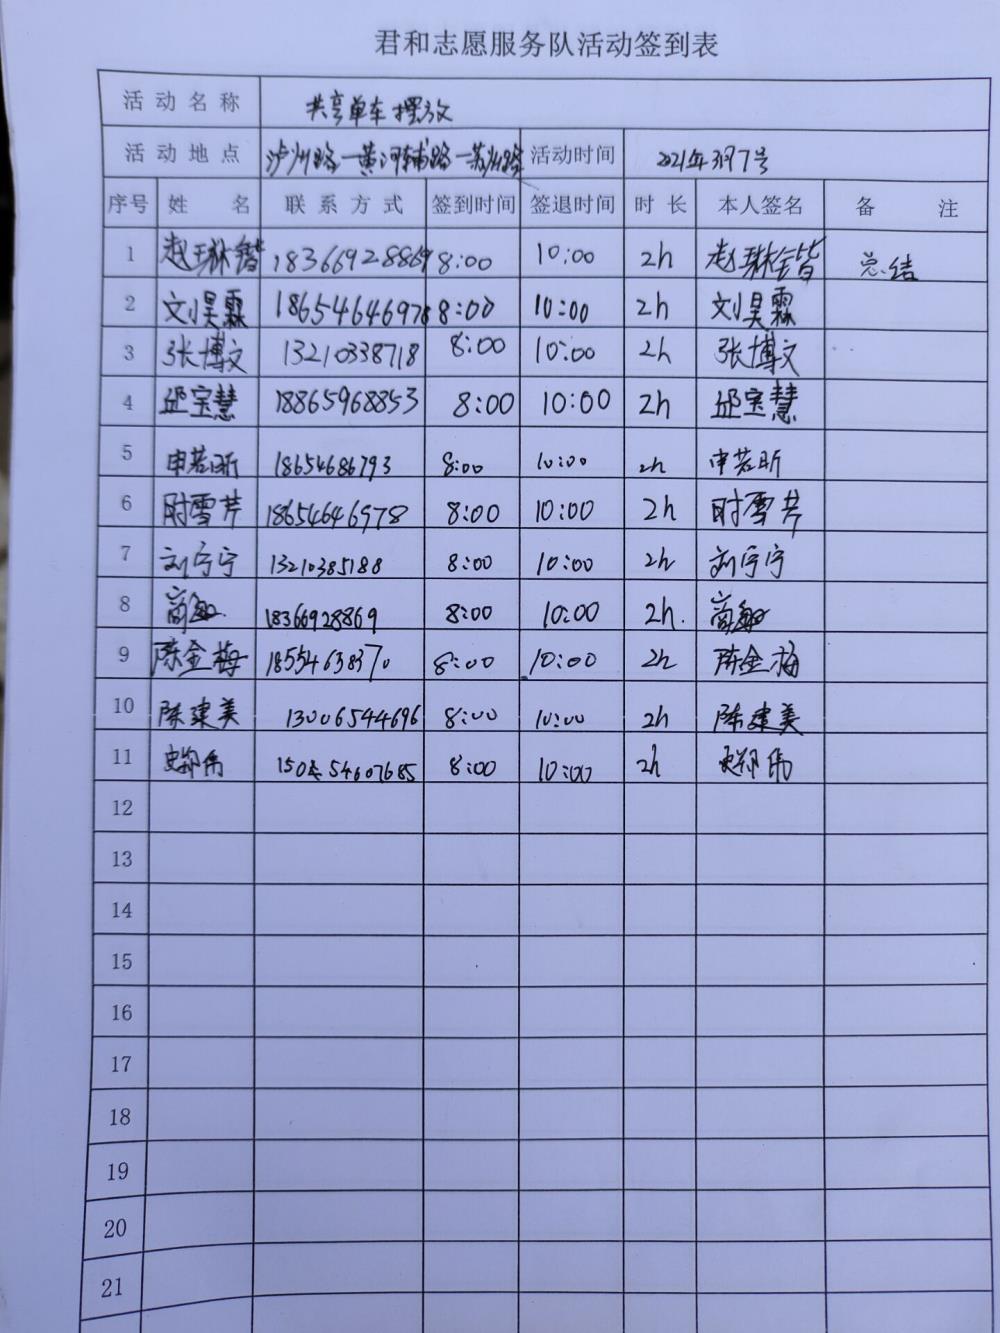 君和志愿服务队活动签到表
活动名称 共享单车摆放
活动地点 泸州路—黄河辅路—苏州路 活动时间 2021年3月7号
序号 姓名 联系方式 签到时间 签退时间 时长 本人签名 备注
1 赵琳锴 18366928869 8:00 10:00 2h 赵琳锴 总结
2 刘昊霖 18654646978 8:00 10:00 2h 刘昊霖
3 张博文 13210338718 8:00 10:00 2h 张博文
4 邱宝慧 18865968853 8:00 10:00 2h 邱宝慧
5 申若昕 18654686793 8:00 10:00 2h 申若昕
6 时雪芹 18654646978 8:00 10:00 2h 时雪芹
7 刘宁宁 13210385188 8:00 10:00 2h 刘宁宁
8 高敏 18366928869 8:00 10:00 2h. 高敏
9 陈金梅 18554638370 8:00 10:00 2h 陈金梅
10 陈建美 13006544696 8:00 10:00 2h 陈建美
11 8:00 10:00 2h
12
13
14
15
16
17
18
19
20
21